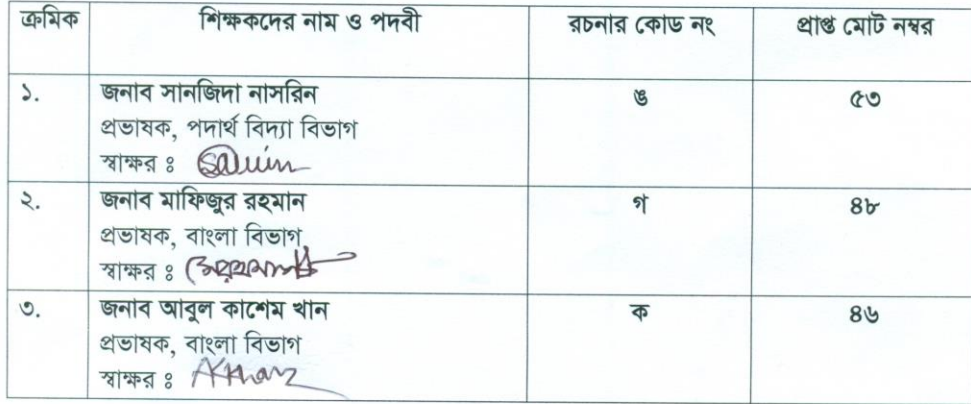 ক্রমিক শিক্ষকদের নাম ও পদবী রচনার কোড নং প্রাপ্ত মোট নম্বর
১. জনাব সানজিদা নাসরিন ঙ ৫৩
প্রভাষক, পদার্থ বিদ্যা বিভাগ
স্বাক্ষর ঃ
২. জনাব মাফিজুর রহমান গ ৪৮
প্রভাষক, বাংলা বিভাগ
স্বাক্ষর ঃ
৩. জনাব আবুল কাশেম খান ক ৪৬
প্রভাষক, বাংলা বিভাগ
স্বাক্ষর ঃ